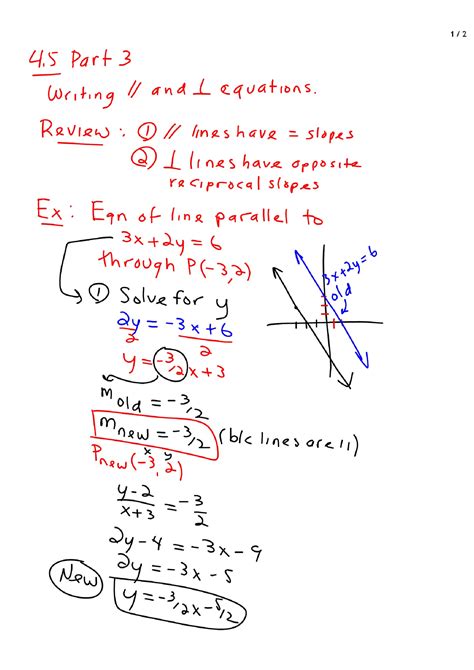 1 / 2
4.5 Part 3
Writing // and ⊥ equations.
Review: ① // lines have = slopes
② ⊥ lines have opposite
reciprocal slopes
Ex: Eqn of line parallel to
3x+2y=6
through P(-3,2)
① Solve for y
2y = -3x+6
2 2
y = -3/2x+3
m old = -3/2
m new = -3/2 (b/c lines are ||)
x y
Pnew(-3, 2)
y-2/x+3 = -3/2
2y-4 = -3x-9
2y = -3x-5
New y = -3/2x-5/2
3x+2y=6
old